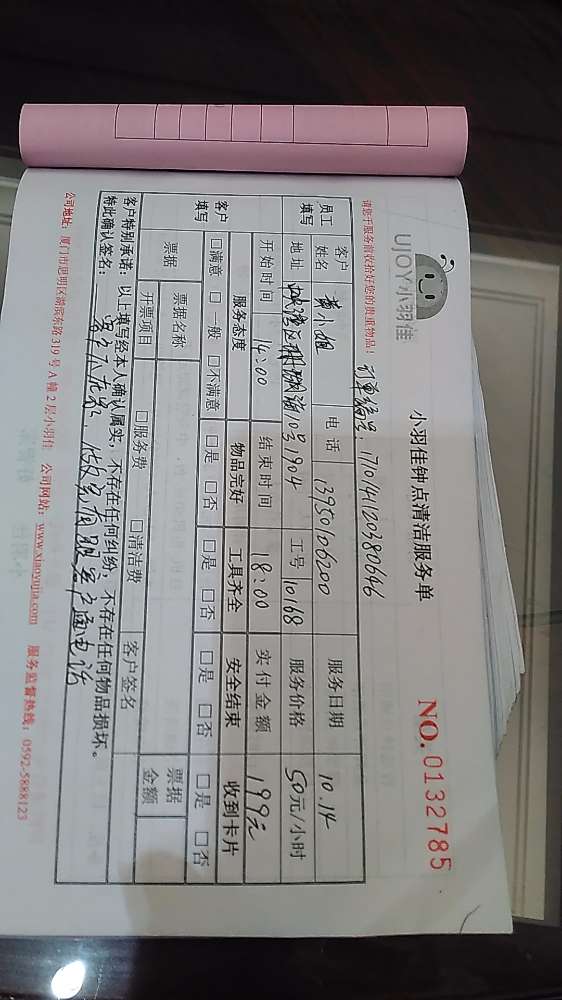 UJOY小羽佳
小羽佳钟点清洁服务单
NO.0132785
请您于服务前收拾好您的贵重物品！
订单编号：1710141120380646
员工填写
客户姓名 黄小姐 电话 13950106200 服务日期 10.14
地址 10号1904 工号 10168 服务价格 50元/小时
开始时间 14:00 结束时间 18:00 实付金额 199元
客户填写
服务态度 物品完好 工具齐全 安全结束 收到卡片
□满意 □一般 □不满意 □是 □否 □是 □否 □是 □否 □是 □否
票据 票据名称 票据金额
开票项目 □服务费 □清洁费 客户签名
客户特别承诺：以上填写经本人确认属实，不存在任何纠纷、不存在任何物品损坏。
特此确认签名：客户不在家、做完有跟客户通电话
公司地址：厦门市思明区湖滨东路319号A幢2层小羽佳 公司网站：www.xiaoyujia.com 服务监督热线：0592-5888123